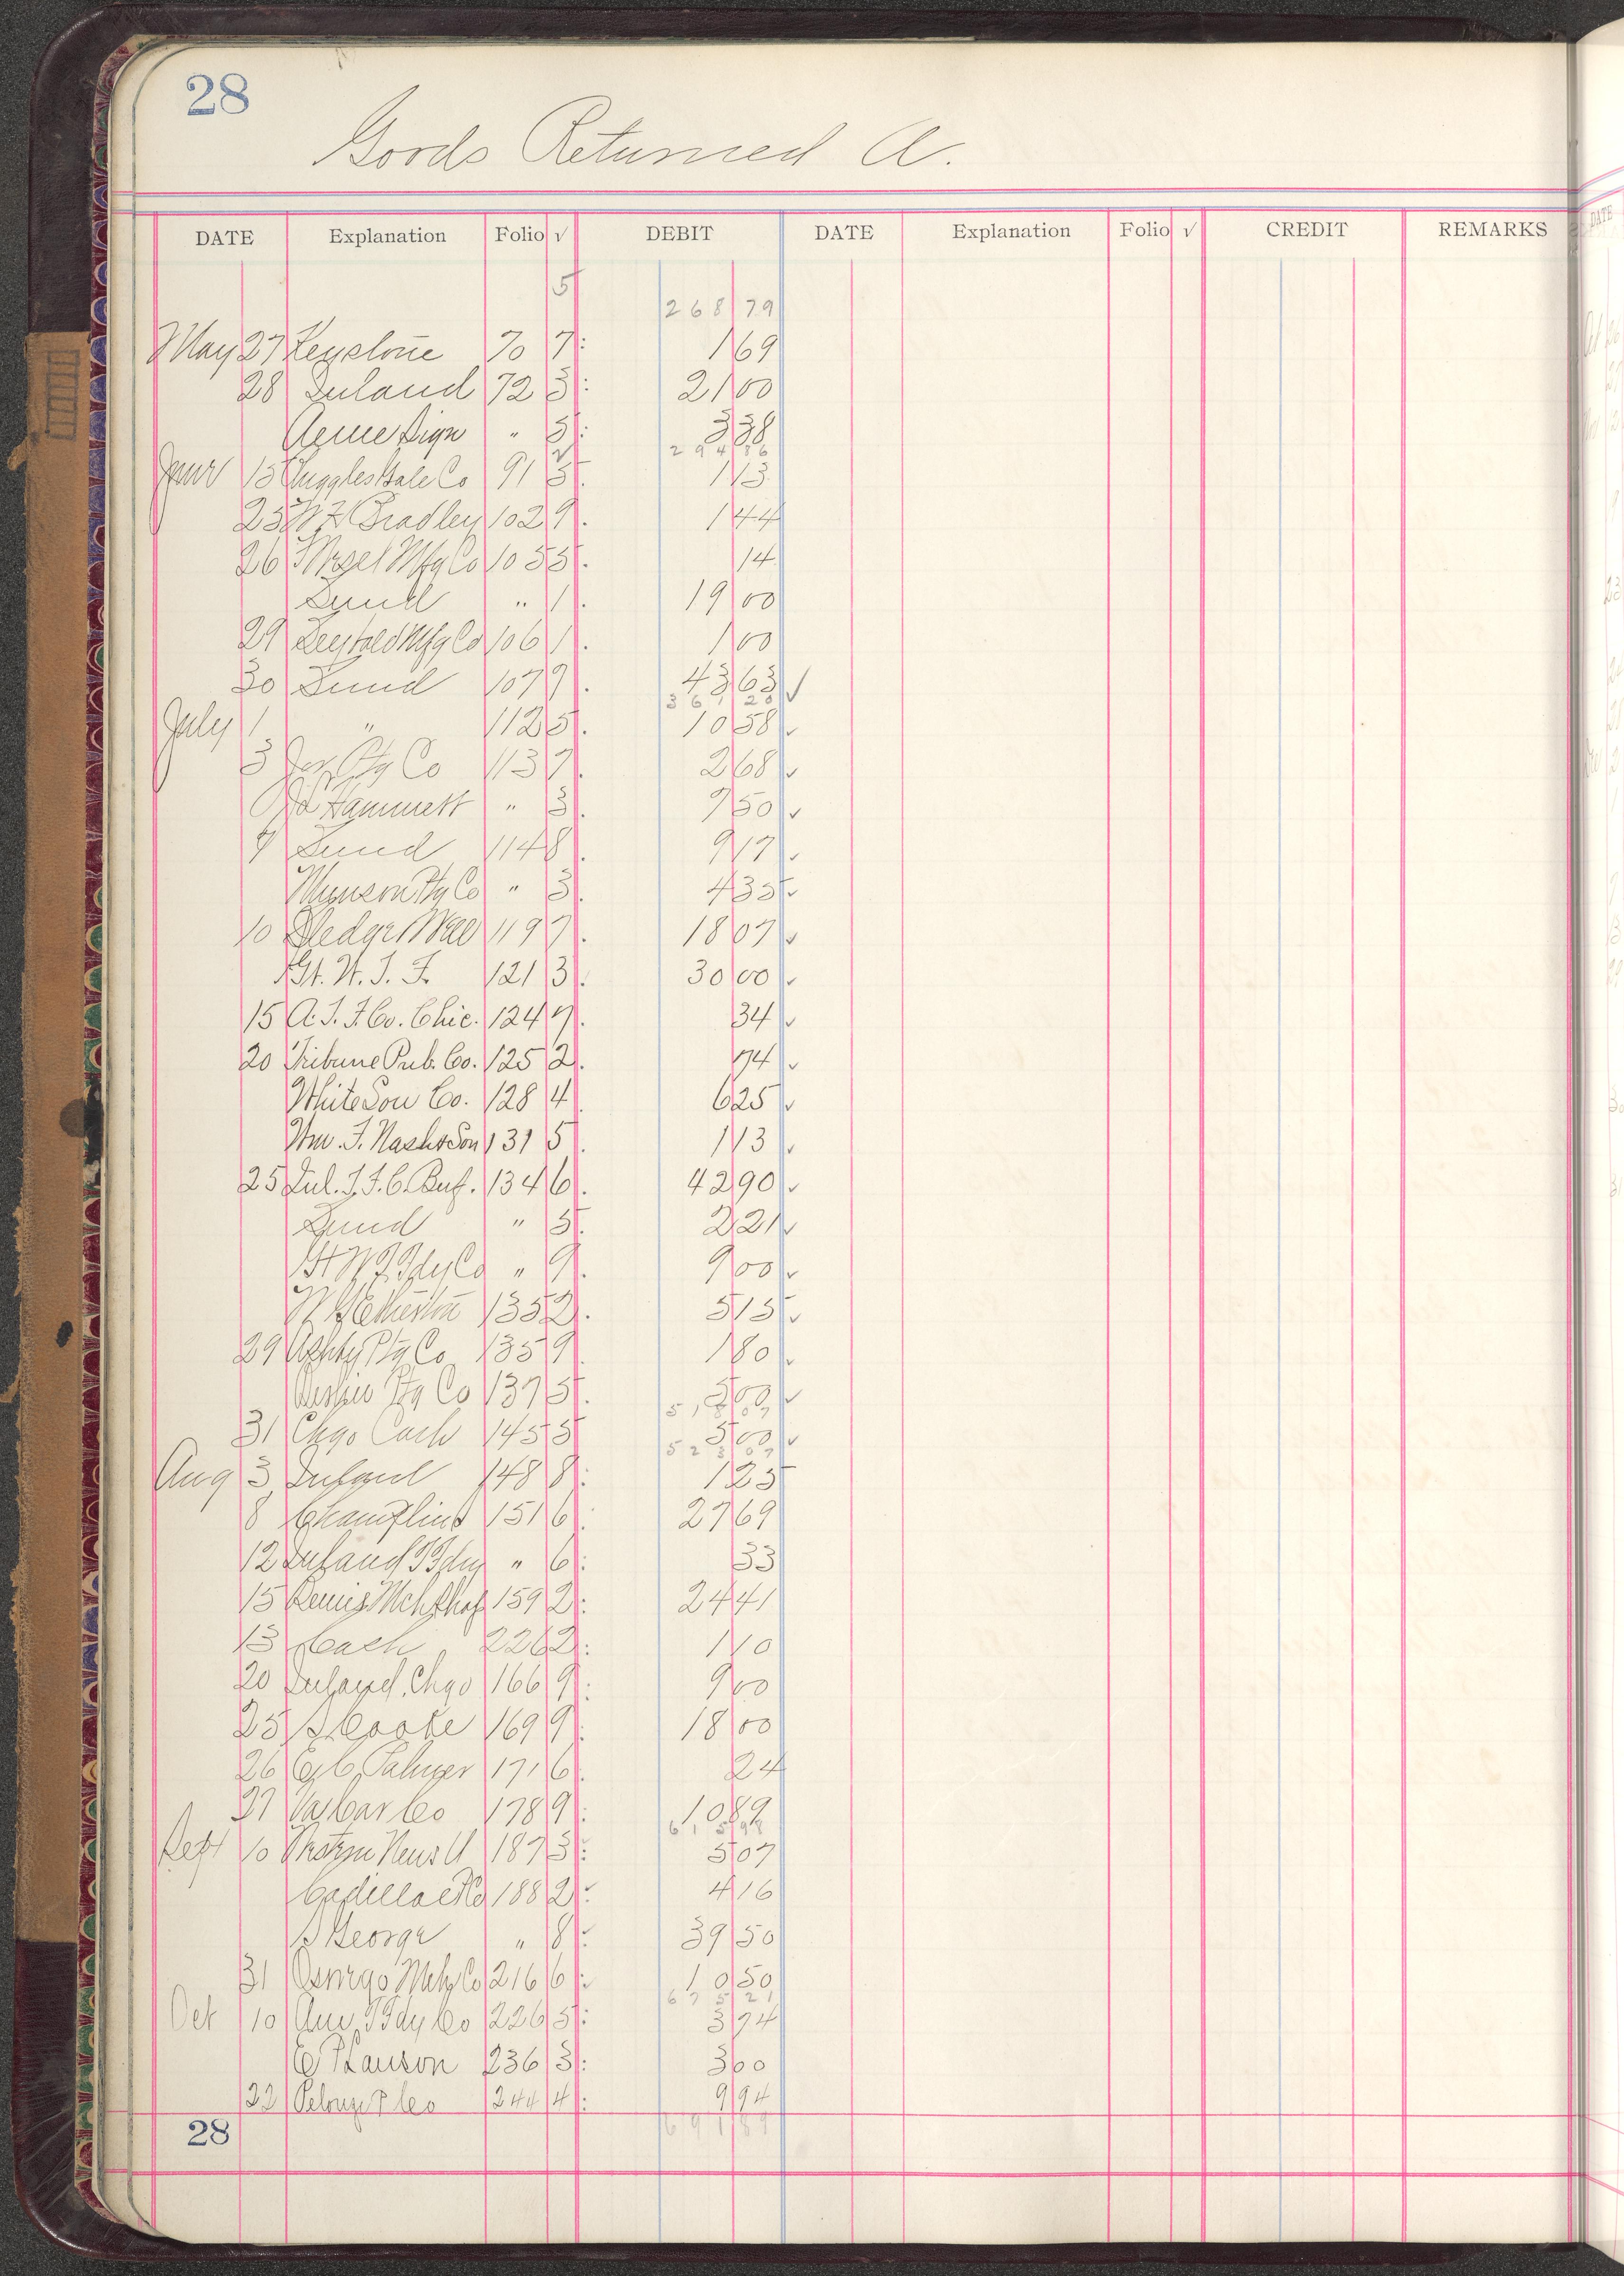 28
Goods Returned A.
DATE Explanation Folio √ DEBIT DATE Explanation Folio √ CREDIT REMARKS
5
268 79
May 27 Keystone 70 7 1 69
28 Inland 72 3 21 00
Acme Sign " 5 3 38
294 86
June 15 Ruggles Gale Co 91 5 1 13
25 Bradley 102 9 1 44
26 Mfg Co 105 5 14
Sund " 1 19 00
29 Mfg Co 106 1 1 00
30 Sund 107 9 43 63 √
361 20
July 1 " 112 5 10 58 √
3 Ptg Co 113 7 2 68 √
Hammett " 3 7 50 √
7 Sund 114 8 9 17 √
Munson Ptg Co " 3 4 35 √
10 119 7 18 07 √
121 3 30 00 √
15 A. T. F. Co. Chic. 124 7 34 √
20 Tribune Pub. Co. 125 2 74 √
White Son Co. 128 4 6 25 √
Wm. F. Nash & Son 131 5 1 13 √
25 Inl. T. F. C. Buf. 134 6 42 90 √
Sund " 5 2 21 √
" 9 9 00 √
135 2 5 15 √
29 Ashby Ptg Co 135 9 1 80 √
Ptg Co 137 5 5 00 √
518 07
31 Chgo Cash 145 5 5 00 √
523 07
Aug 3 Inland 148 8 1 25
8 Champlin 151 6 27 69
12 Inland T Fdry " 6 33
15 159 2 24 41
15 Cash 226 2 1 10
20 Inland, Chgo 166 9 9 00
25 Cooke 169 9 18 00
26 Palmer 171 6 24
27 Car Co 178 9 10 89
615 98
Sept 10 News U 187 3 5 07
Cadillac 188 2 4 16
George " 8 39 50
31 Oswego Mch Co 216 6 10 50
675 21
Oct 10 Am T Fdy Co 226 5 3 74
E P Lauson 236 3 3 00
22 Pelouze & Co 244 4 9 94
691 89
28